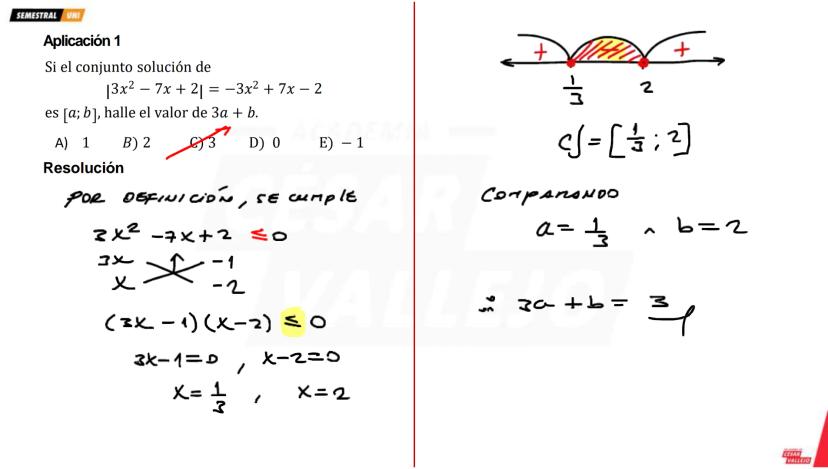 SEMESTRAL UNI
Aplicación 1
Si el conjunto solución de
|3x² − 7x + 2| = −3x² + 7x − 2
es [a; b], halle el valor de 3a + b.
A) 1 B) 2 C) 3 D) 0 E) − 1
Resolución
POR DEFINICIÓN, SE CUMPLE
3x² −7x+2 ≤ 0
3x −1
x −2
(3x −1)(x−2) ≤ 0
3x−1=0 , x−2=0
x= 1/3 , x=2
+ +
1/3 2
CS=[1/3 ; 2]
COMPARANDO
a= 1/3 ^ b=2
∴ 3a+b= 3
ACADEMIA
CÉSAR
VALLEJO
ACADEMIA
CÉSAR
VALLEJO